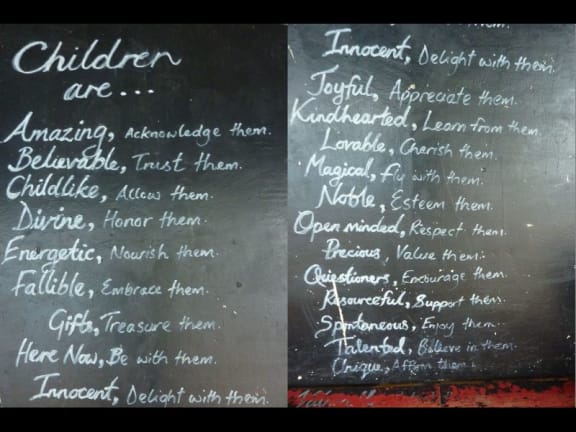 Children
are...
Amazing, Acknowledge them.
Believable, Trust them.
Childlike, Allow them.
Divine, Honor them.
Energetic, Nourish them.
Fallible, Embrace them.
Gifts, Treasure them.
Here Now, Be with them.
Innocent, Delight with them.
Innocent, Delight with them.
Joyful, Appreciate them.
Kindhearted, Learn from them.
Lovable, Cherish them.
Magical, Fly with them.
Noble, Esteem them.
Open minded, Respect them.
Precious, Value them.
Questioners, Encourage them.
Resourceful, Support them.
Spontaneous, Enjoy them.
Talented, Believe in them.
Unique, Affirm them.